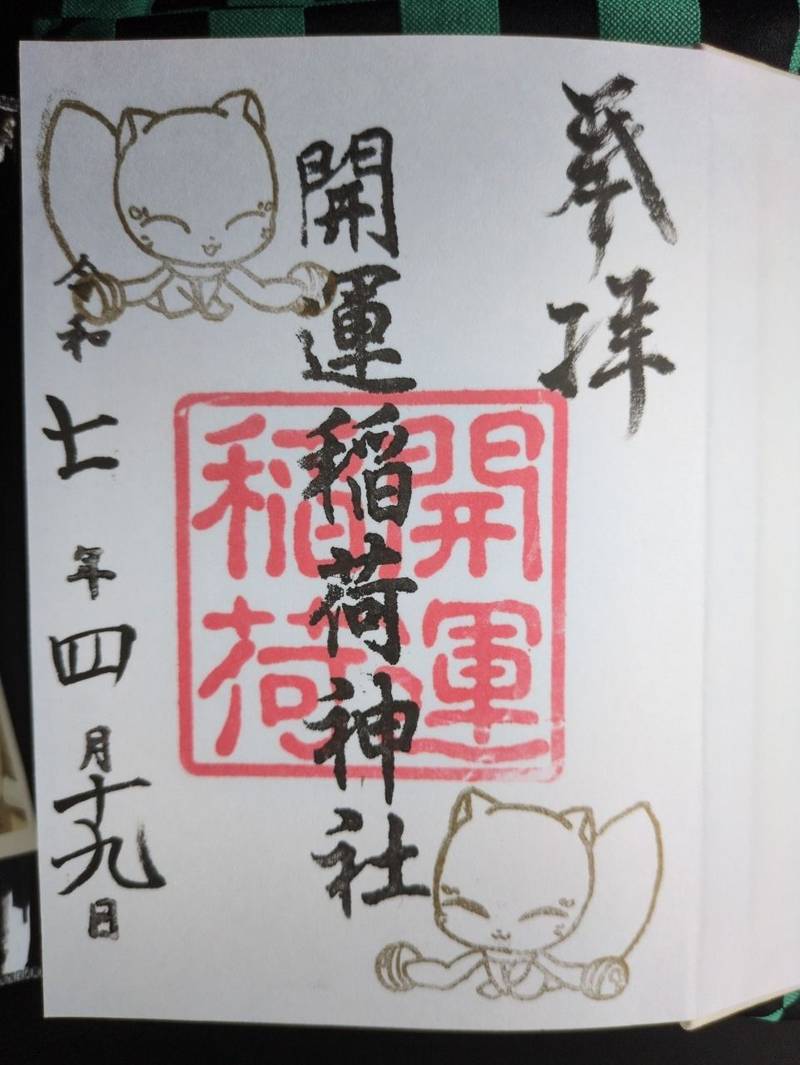 奉拝
開運稲荷神社
開運
稲荷
令和七年四月十九日